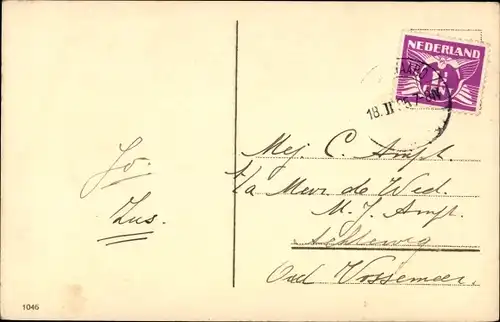 NEDERLAND
18.II
Jo.
Zus.
Mej. C. Ampt.
t/a Mevr. de Wed.
M. J. Ampt.
Oud Vossemeer.
1046